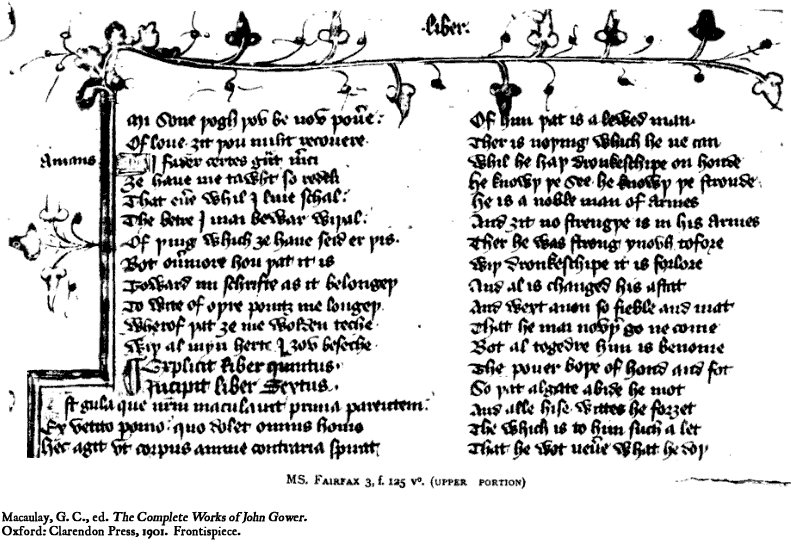 liber.
Mi Sone þogh þov be nov pou̾e:
Of loue ȝit þou miht recouere.
Amans
¶ Mi fader certes gͣnt m̾ci
Ȝe haue me tawht so redeli
That eu̾e whil I liue schal:
The betre I mai be war wiþal:
Of þing which ȝe haue seid er þis.
Bot ou̾more hou þat it is
Toward mi schrifte as it belongeþ
To wite of oþre pointz me longeþ.
Wherof þat ȝe me wolden teche
Wiþ al myn herte I ȝov beseche.
¶ Explicit liber quintus.
Incipit liber Sextus.
Est gula que nr̄m maculauit prima parentem:
Ex vetito pomo: quo dolet omnis homo
Hec agit vt corpus anime contraria spirat
Of him þat is a lewed man.
Ther is noþing which he ne can
Whil he haþ dronkeschipe on honde
He knowþ þe See. he knowþ þe stronde.
He is a noble man of armes
And ȝit no strengþe is in his armes
Ther he was strong ynovh tofore
Wiþ dronkeschipe it is forlore
And al is changed his astat
And wext anon so fieble and mat
That he mai nowþ̾ go ne come
Bot al togedre him is benome
The pouer boþe of hond and fot
So þat algate abide he mot
And alle hise wittes he forȝet
The which is to him such a let
That he wot neu̾e what he doþ
MS. FAIRFAX 3, f. 125 vº. (UPPER PORTION)
Macaulay, G. C., ed. The Complete Works of John Gower.
Oxford: Clarendon Press, 1901. Frontispiece.